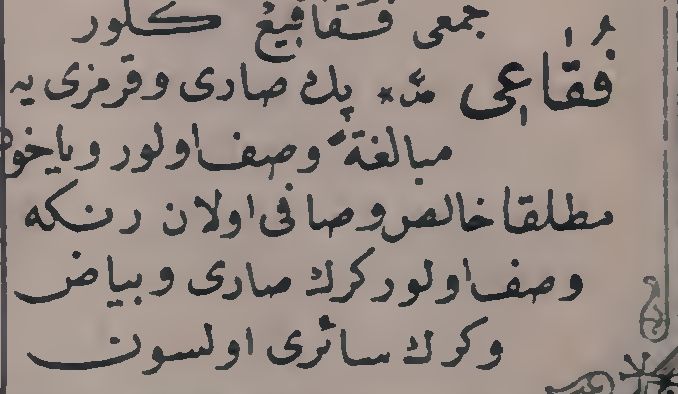 جمعى فقاقيع كلور
فُقاعى مد * پك صارى وقرمزى يه
مبالغةً وصف اولور وياخود
مطلقا خالص وصافى اولان رنكه
وصف اولور كرك صارى وبياض
وكرك سائرى اولسون